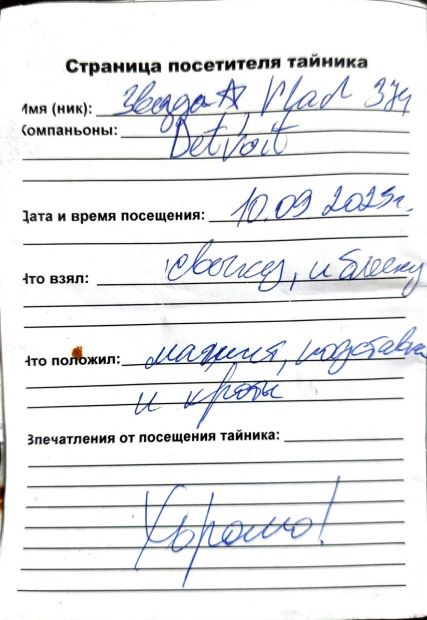 Страница посетителя тайника
Имя (ник): Звезда☆ Vlad 374
Компаньоны: Detroit
Дата и время посещения: 10.09 2023г.
Что взял: свечку, и блесну
Что положил: магнит, подставка
и кроты
Впечатления от посещения тайника:
Хорошо!